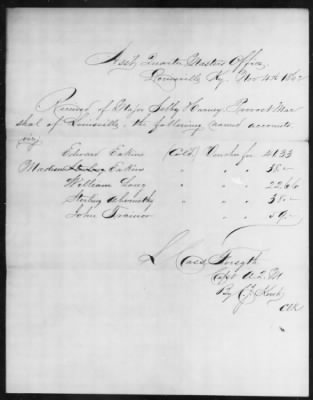 Asst Quarter Masters Office
Louisville Ky. Nov 4th 1862
Received of Major Selby Harney Provost Mar
shal of Louisville, the following named accounts
viz,
Edward Eakins (Cold) Voucher for 41.33
Madison Eakins " " " 38.-
William Long " " " 22.66
Sterling Abernathy " " " 38.-
John Trainor " " "
L Cass Forsyth
Capt A.Q.M
By
Clk